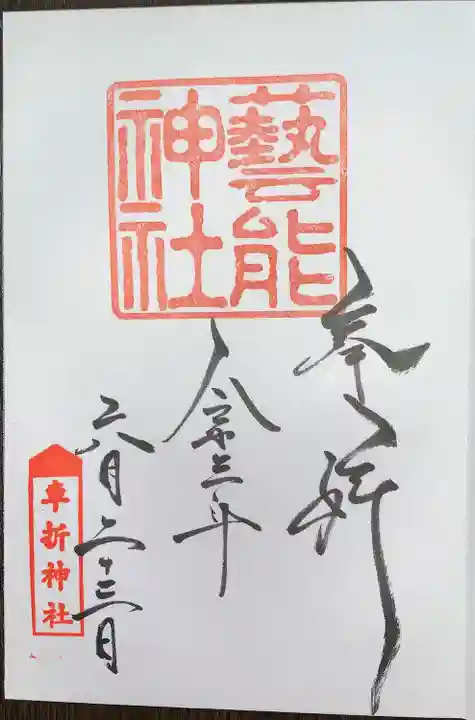 藝能
神社
奉拝
令和三年
六月二十三日
車折神社